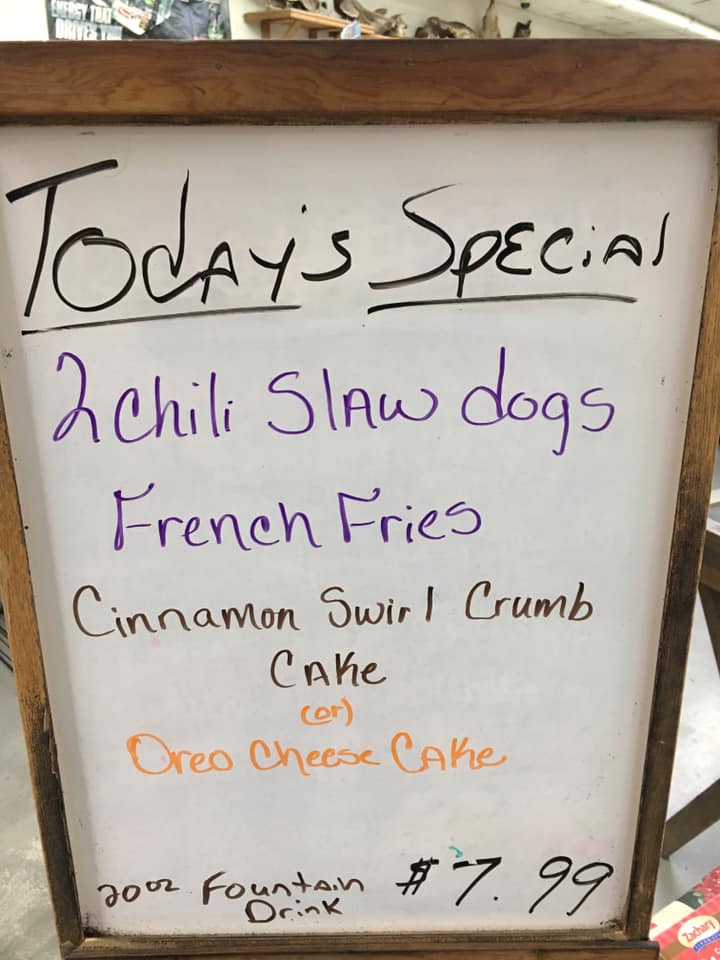 ENERGY THAT
DRIVES YOU
Today's Special
2 chili Slaw dogs
French Fries
Cinnamon Swirl Crumb
Cake
(or)
Oreo Cheese Cake
20 oz Fountain
Drink
$7.99
Zachary